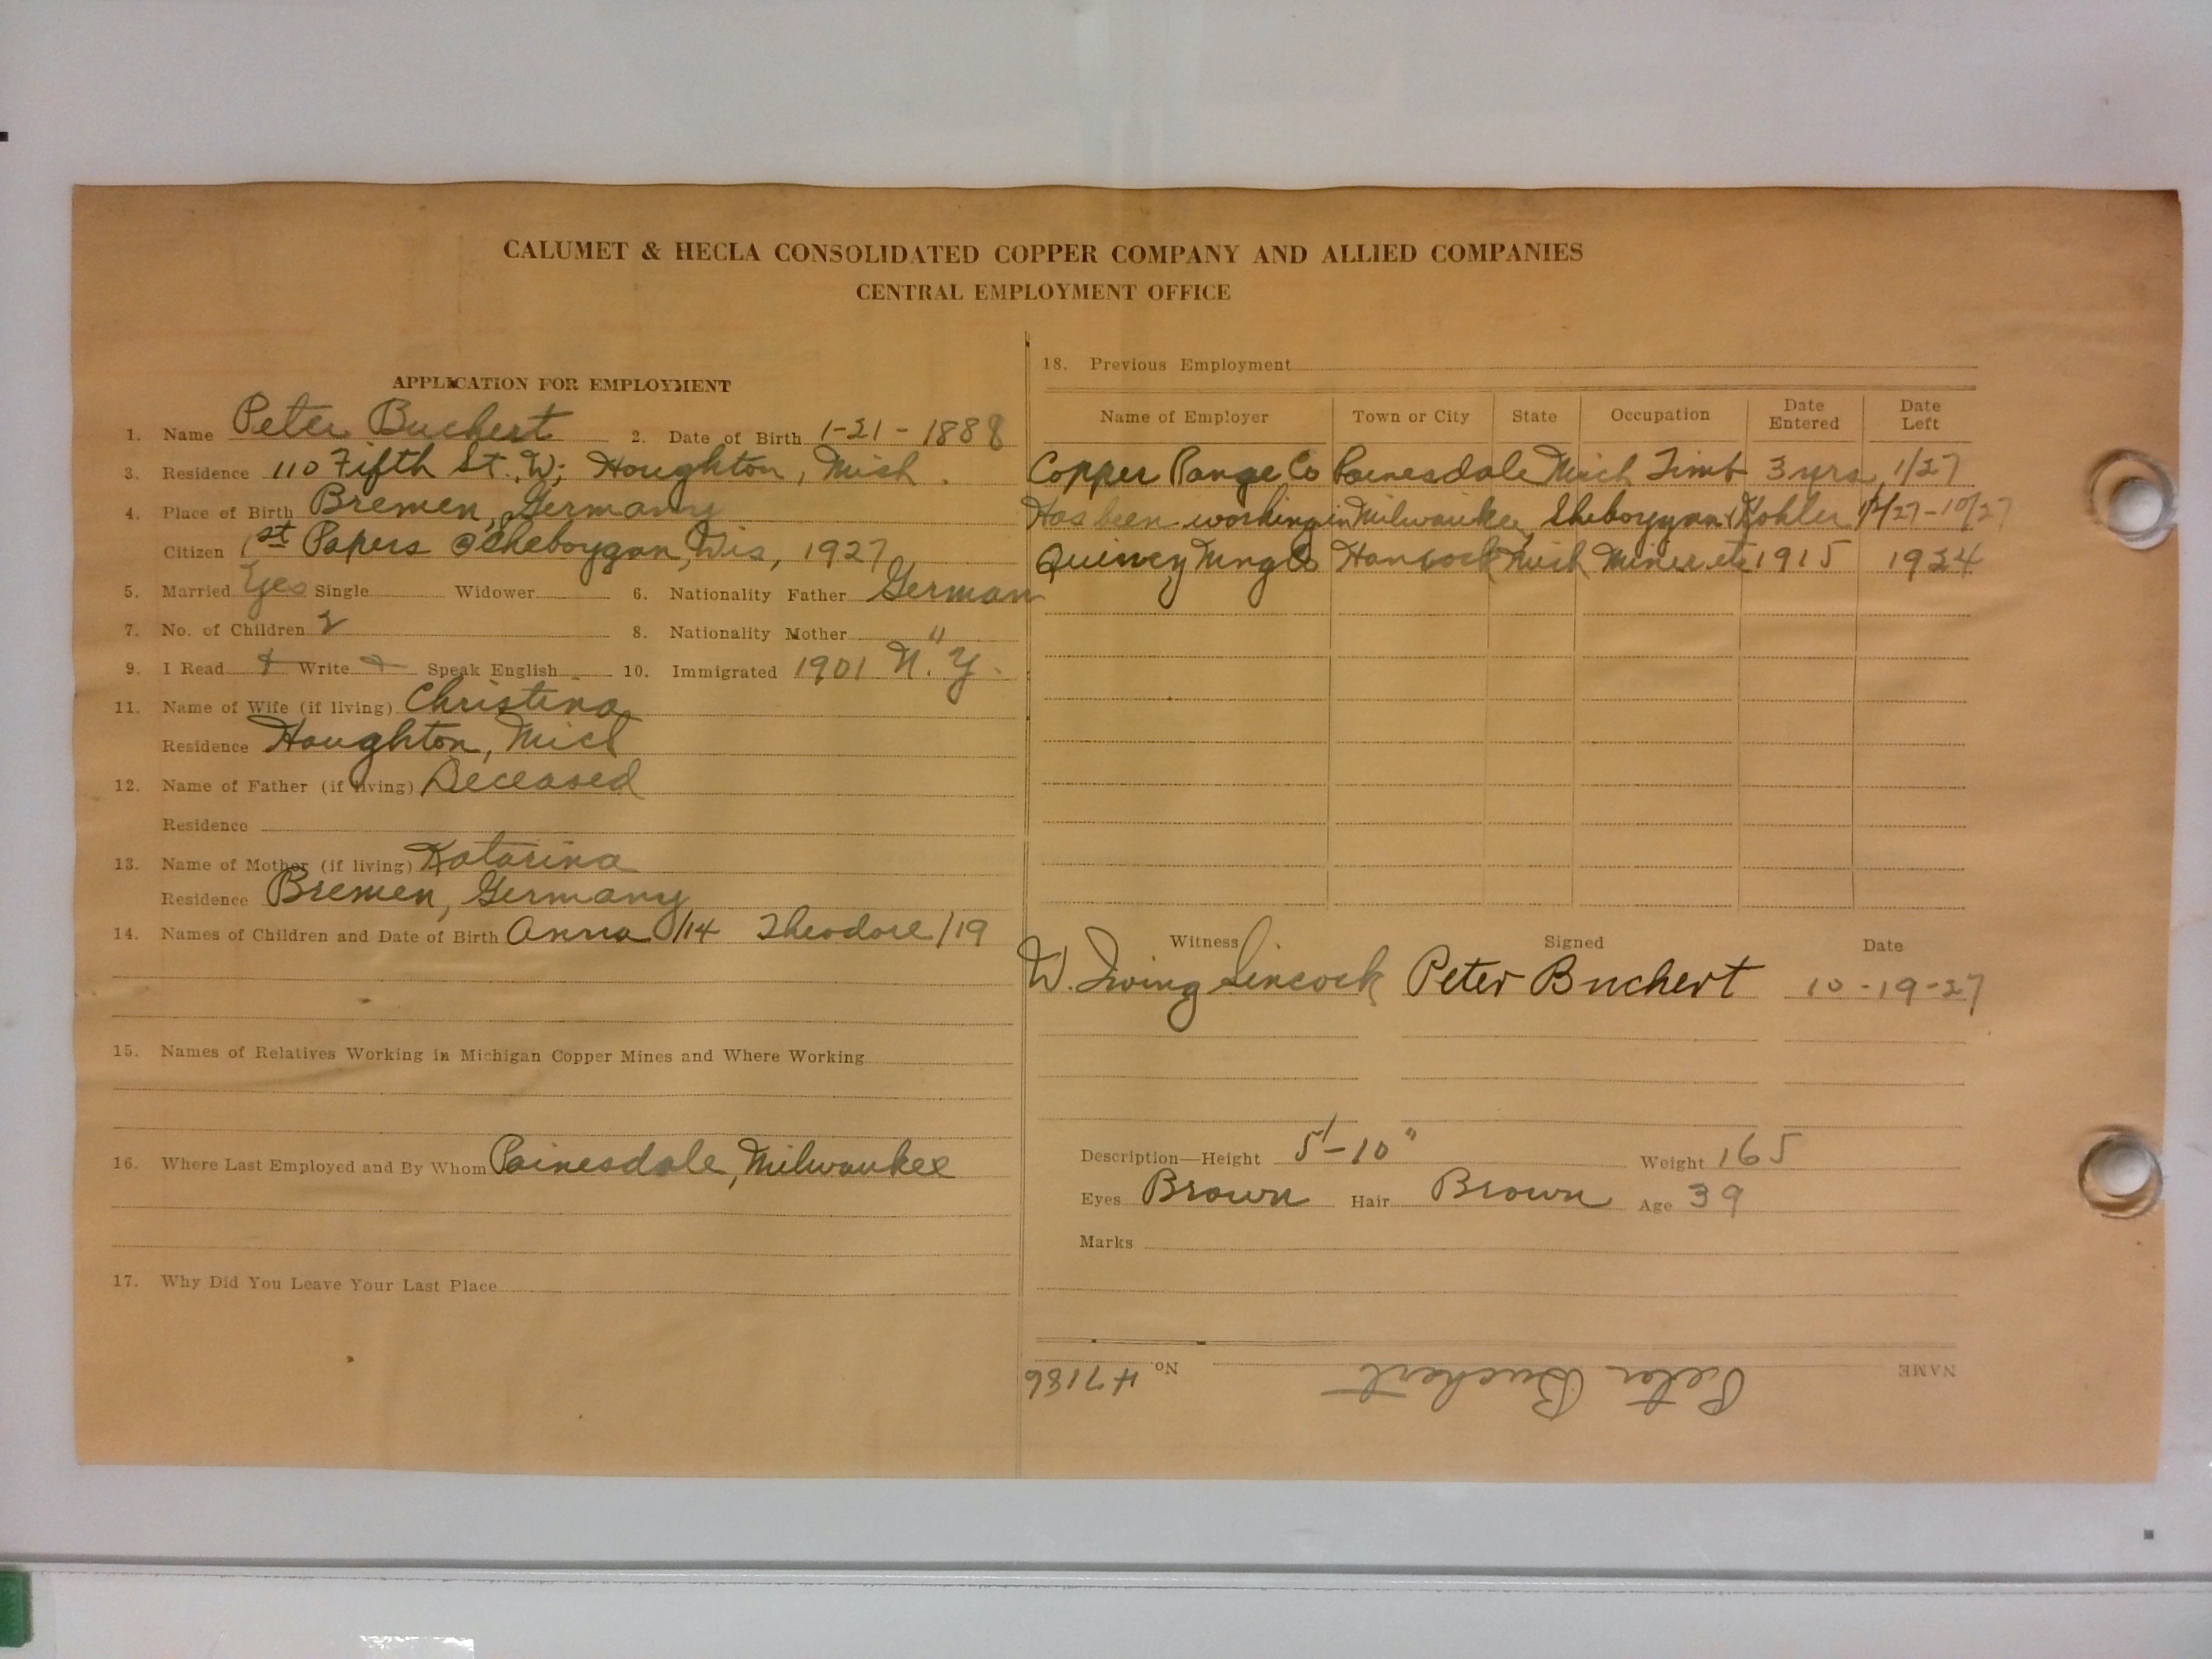 CALUMET & HECLA CONSOLIDATED COPPER COMPANY AND ALLIED COMPANIES
CENTRAL EMPLOYMENT OFFICE
APPLICATION FOR EMPLOYMENT
1. Name Peter Buchert 2. Date of Birth 1-21-1888
3. Residence 110 Fifth St. W; Houghton, Mich.
4. Place of Birth Bremen, Germany
Citizen 1st Papers @ Sheboygan, Wis, 1927
5. Married Yes Single Widower 6. Nationality Father German
7. No. of Children 2 8. Nationality Mother "
9. I Read + Write + Speak English 10. Immigrated 1901 N.Y.
11. Name of Wife (if living) Christina
Residence Houghton, Mich
12. Name of Father (if living) Deceased
Residence
13. Name of Mother (if living) Katarina
Residence Bremen, Germany
14. Names of Children and Date of Birth Anna /14 Theodore /19
15. Names of Relatives Working in Michigan Copper Mines and Where Working
16. Where Last Employed and By Whom Painesdale, Milwaukee
17. Why Did You Leave Your Last Place
18. Previous Employment
Name of Employer Town or City State Occupation Date Entered Date Left
Copper Range Co Painesdale Mich Timb 3 yrs 1/27
Has been working in Milwaukee, Sheboygan Kohler 1/27-10/27
Quincy Mng Co Hancock Mich Miner etc 1915 1924
Witness Signed Date
W. Irving Sincock Peter Buchert 10-19-27
Description—Height 5'-10" Weight 165
Eyes Brown Hair Brown Age 39
Marks
NAME Peter Buchert No. H7186